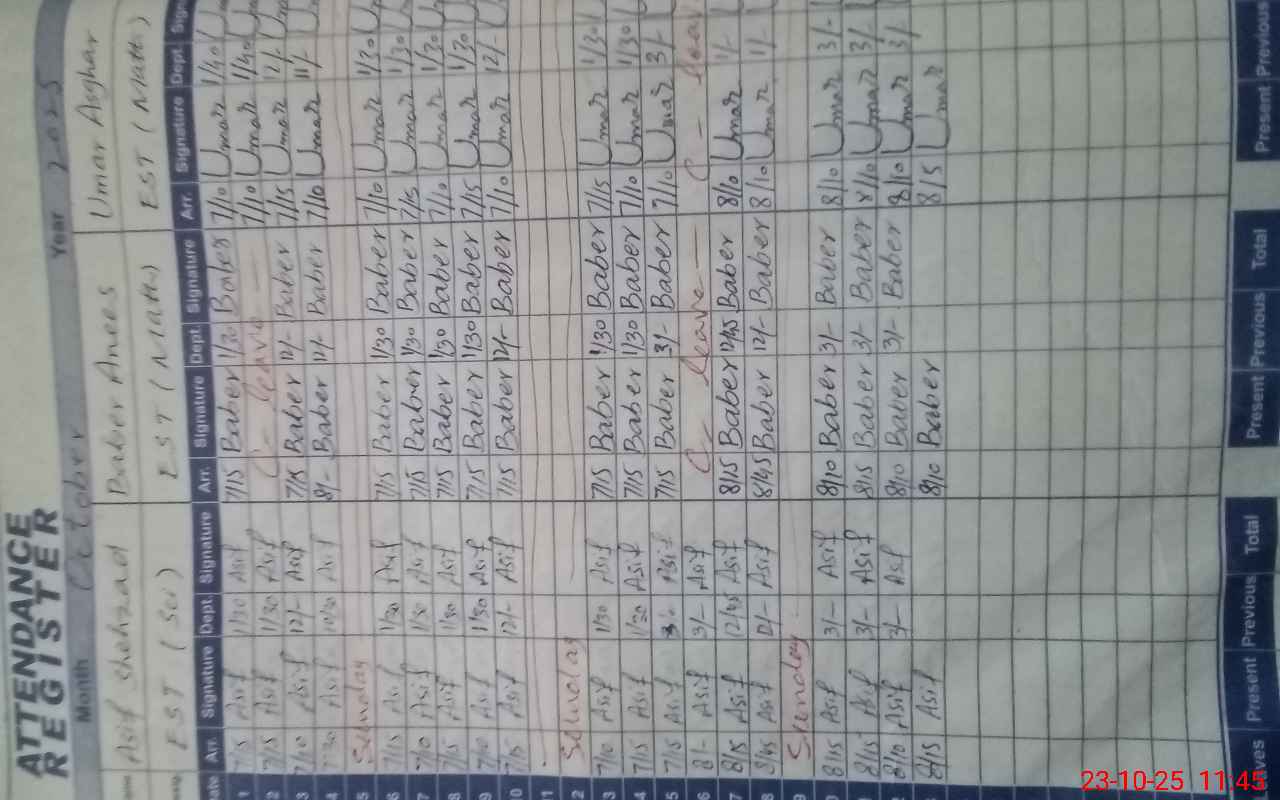 ATTENDANCE
REGISTER
Month October Year 2025
Asif Shehzad Baber Anees Umar Asghar
EST (Sci) EST (Matts) EST (Matts)
Arr. Signature Dept. Signature Arr. Signature Dept. Signature Arr. Signature Dept.
1 7/15 Asif 1/30 Asif 7/15 Baber 1/30 Baber 7/10 Umar 1/40
2 7/15 Asif 1/30 Asif C - leave 7/10 Umar 1/40
3 7/10 Asif 12/- Asif 7/15 Baber 12/- Baber 7/15 Umar 12/-
4 Asif Asif 8/- Baber 12/- Baber 7/10 Umar 11/-
5 Sunday
6 7/15 Asif 1/30 Asif 7/15 Baber 1/30 Baber 7/10 Umar 1/30
7 7/10 Asif 1/30 Asif 7/15 Baber 1/30 Baber 7/15 Umar 1/30
8 7/15 Asif 1/30 Asif 7/15 Baber 1/30 Baber 7/10 Umar 1/30
9 7/10 Asif 1/30 Asif 7/15 Baber 1/30 Baber 7/15 Umar 1/30
10 7/15 Asif 12/- Asif 7/15 Baber 12/- Baber 7/10 Umar 12/-
11
2 Sunday
3 7/10 Asif 1/30 Asif 7/15 Baber 1/30 Baber 7/15 Umar 1/30
4 7/15 Asif 1/30 Asif 7/15 Baber 1/30 Baber 7/10 Umar 1/30
5 7/15 Asif Asif 7/15 Baber 3/- Baber 7/10 Umar 3/-
6 8/- Asif 3/- Asif C - leave C - leav
7 8/15 Asif 12/45 Asif 8/15 Baber 12/45 Baber 8/10 Umar 1/-
8 8/45 Asif 12/- Asif 8/45 Baber 12/- Baber 8/10 Umar 1/-
9 Sunday
8/15 Asif 3/- Asif 8/10 Baber 3/- Baber 8/10 Umar 3/-
8/15 Asif 3/- Asif 8/15 Baber 3/- Baber 8/10 Umar 3/-
8/10 Asif 3/- Asif 8/10 Baber 3/- Baber 8/10 Umar 3/-
8/15 Asif 8/10 Baber 8/15 Umar
Present Previous Total Present Previous Total Present Previous
23-10-25 11:45